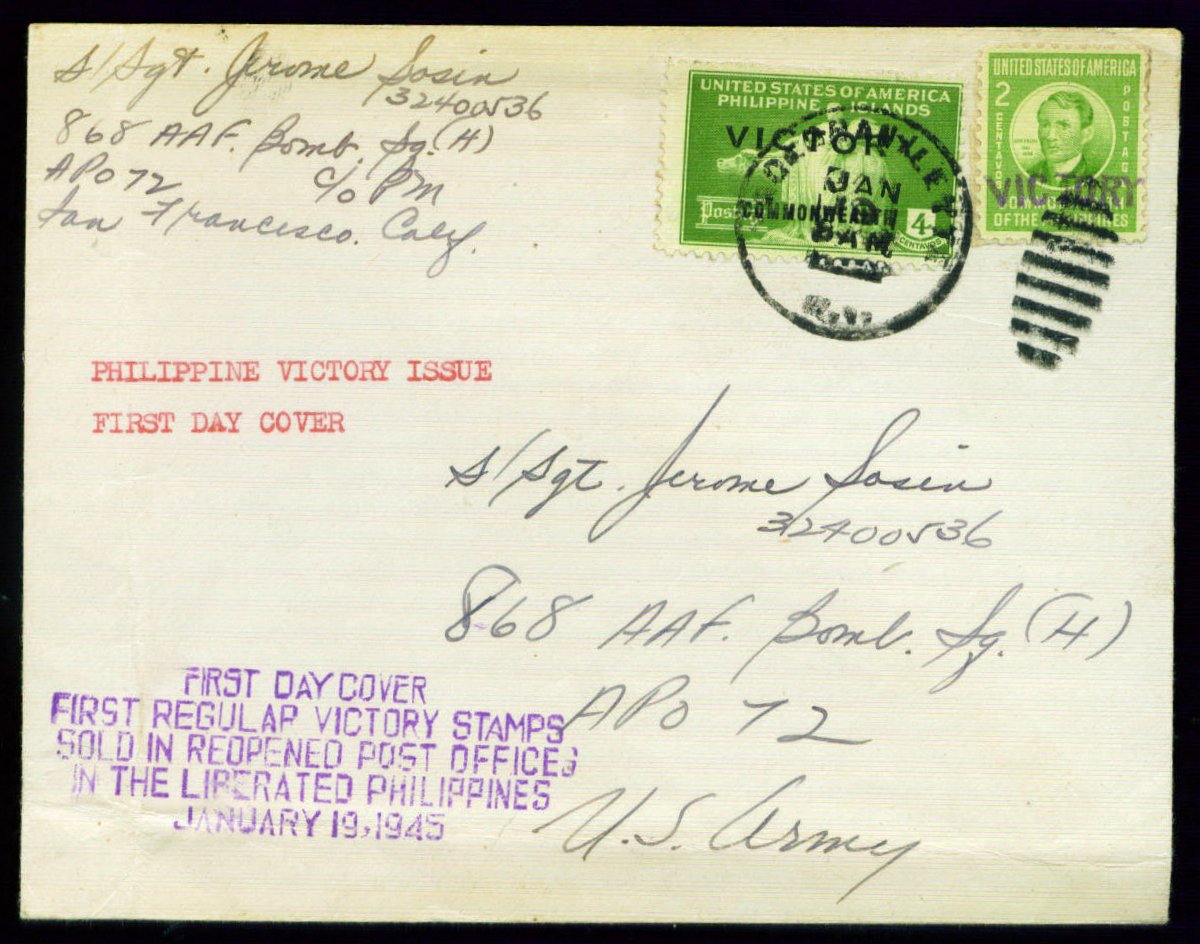 s/Sgt. Jerome Sosin
32400536
868 AAF. Bomb. Sq. (H)
APO 72 c/o PM
San Francisco. Calif.
UNITED STATES OF AMERICA
PHILIPPINE ISLANDS
VICTORY
COMMONWEALTH
4
CENTAVOS
JAN
19
8 AM
UNITED STATES OF AMERICA
2
CENTAVOS
POSTAGE
VICTORY
COMMONWEALTH
OF THE PHILIPPINES
PHILIPPINE VICTORY ISSUE
FIRST DAY COVER
s/Sgt. Jerome Sosin
32400536
868 AAF. Bomb. Sq. (H)
APO 72
U.S. Army
FIRST DAY COVER
FIRST REGULAR VICTORY STAMPS
SOLD IN REOPENED POST OFFICES
IN THE LIBERATED PHILIPPINES
JANUARY 19, 1945